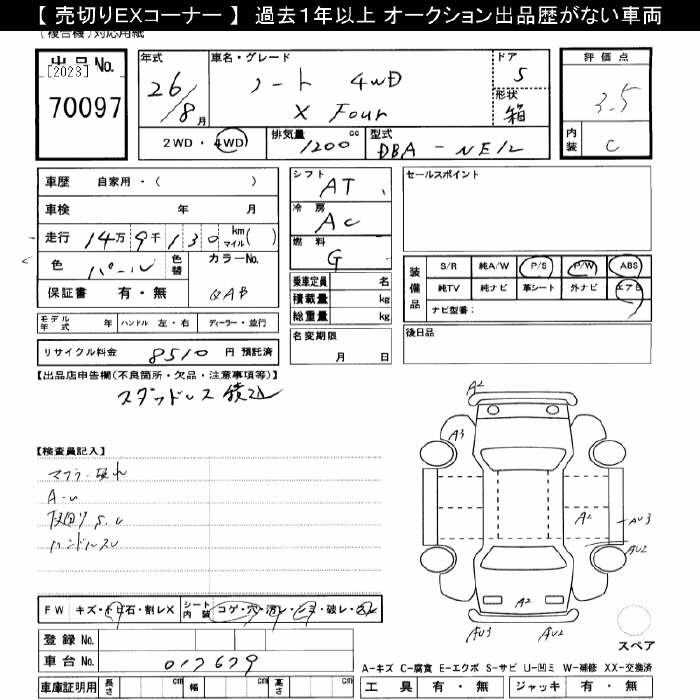 【 売切りEXコーナー 】 過去１年以上 オークション出品歴がない車両
（複合機）対応用紙
出品No.
[2023]
70097
年式
26/8月
車名・グレード
ノート 4WD
X Four
ドア
5
形状
箱
評価点
3.5
内装
C
2WD・4WD
排気量 1200 cc
型式 DBA-NE12
車歴 自家用・（ ）
車検 年 月
走行 14万9千130 km マイル( )
色 パール 色替
カラーNo. QAB
保証書 有・無
シフト AT
冷房 AC
燃料 G
乗車定員 名
積載量 kg
総重量 kg
セールスポイント
装備品
S/R 純A/W P/S P/W ABS
純TV 純ナビ 革シート 外ナビ エアB
ナビ型番：
モデル年式 年 ハンドル 左・右 ディーラー・並行
名変期限
月 日
後日品
リサイクル料金 8510 円 預託済
【出品店申告欄(不良箇所・欠品・注意事項等)】
スタッドレス積込
【検査員記入】
マフラー破れ
A-U
下回りS.U
ハンドルスレ
A2
A3
A2
AU3
AU2
A2
AU3
AU2
スペア
FW キズ・トビ石・割レX
シート内装 コゲ・穴・汚レ・シミ・破レ・スレ
登録No.
車台No. 017679
車庫証明用 長さ cm 幅 cm 高さ cm
A-キズ C-腐食 E-エクボ S-サビ U-凹ミ W-補修 XX-交換済
工具 有・無 ジャッキ 有・無